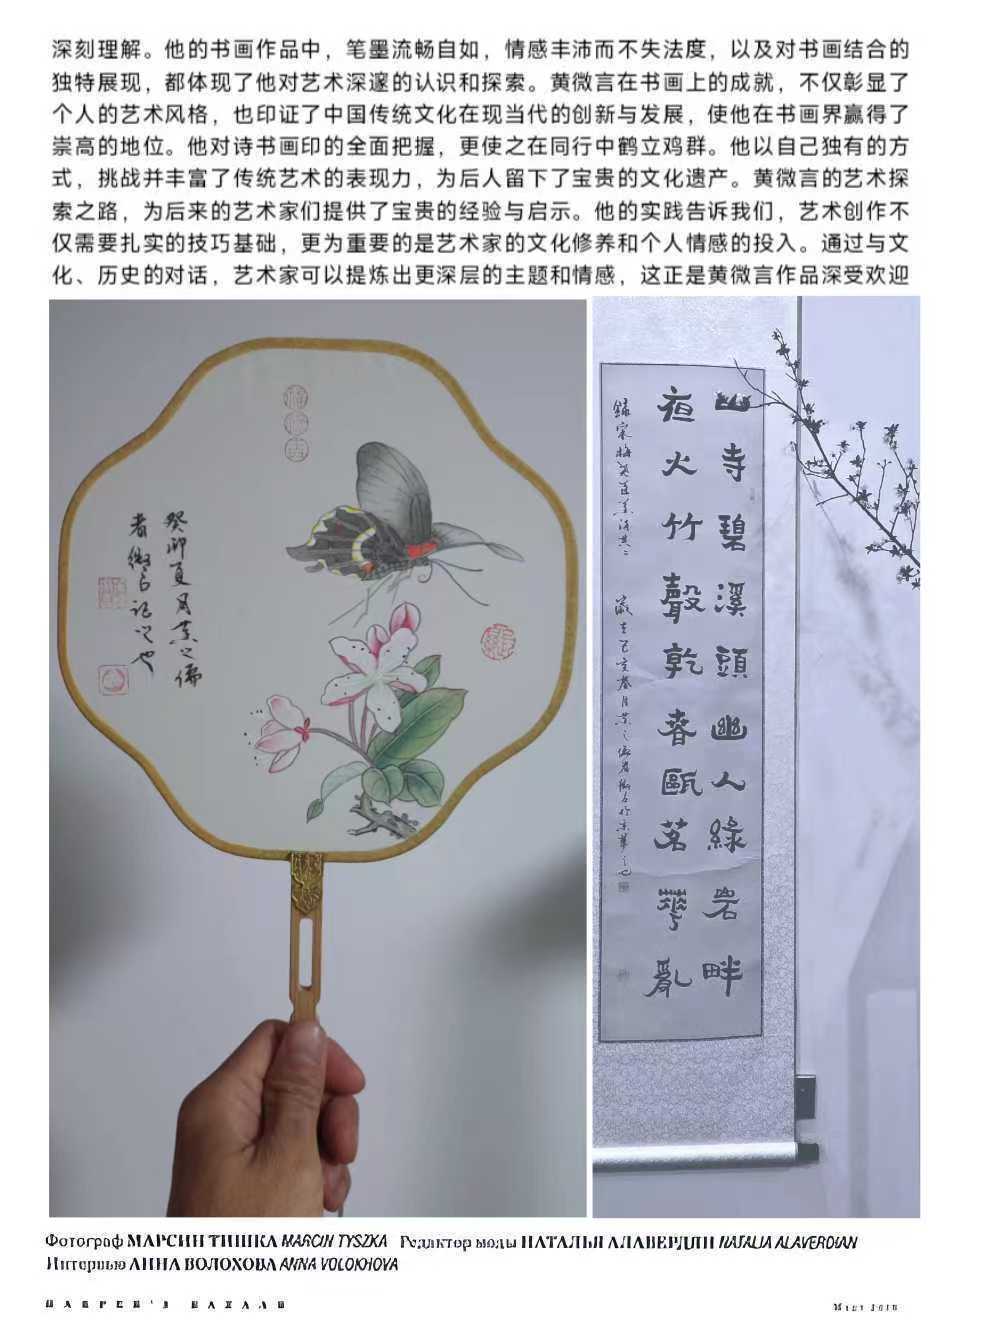 深刻理解。他的书画作品中，笔墨流畅自如，情感丰沛而不失法度，以及对书画结合的
独特展现，都体现了他对艺术深邃的认识和探索。黄微言在书画上的成就，不仅彰显了
个人的艺术风格，也印证了中国传统文化在现当代的创新与发展，使他在书画界赢得了
崇高的地位。他对诗书画印的全面把握，更使之在同行中鹤立鸡群。他以自己独有的方
式，挑战并丰富了传统艺术的表现力，为后人留下了宝贵的文化遗产。黄微言的艺术探
索之路，为后来的艺术家们提供了宝贵的经验与启示。他的实践告诉我们，艺术创作不
仅需要扎实的技巧基础，更为重要的是艺术家的文化修养和个人情感的投入。通过与文
化、历史的对话，艺术家可以提炼出更深层的主题和情感，这正是黄微言作品深受欢迎
癸卯夏月京之儒
者微言记之也
山寺碧溪頭幽人綠岩畔
夜火竹聲乾春甌茗花亂
Фотограф МАРСИН ТИШКА MARCIN TYSZKA Редактор моды НАТАЛЬЯ АЛАВЕРДЯН NATALIA ALAVERDIAN
Интервью АННА ВОЛОХОВА ANNA VOLOKHOVA